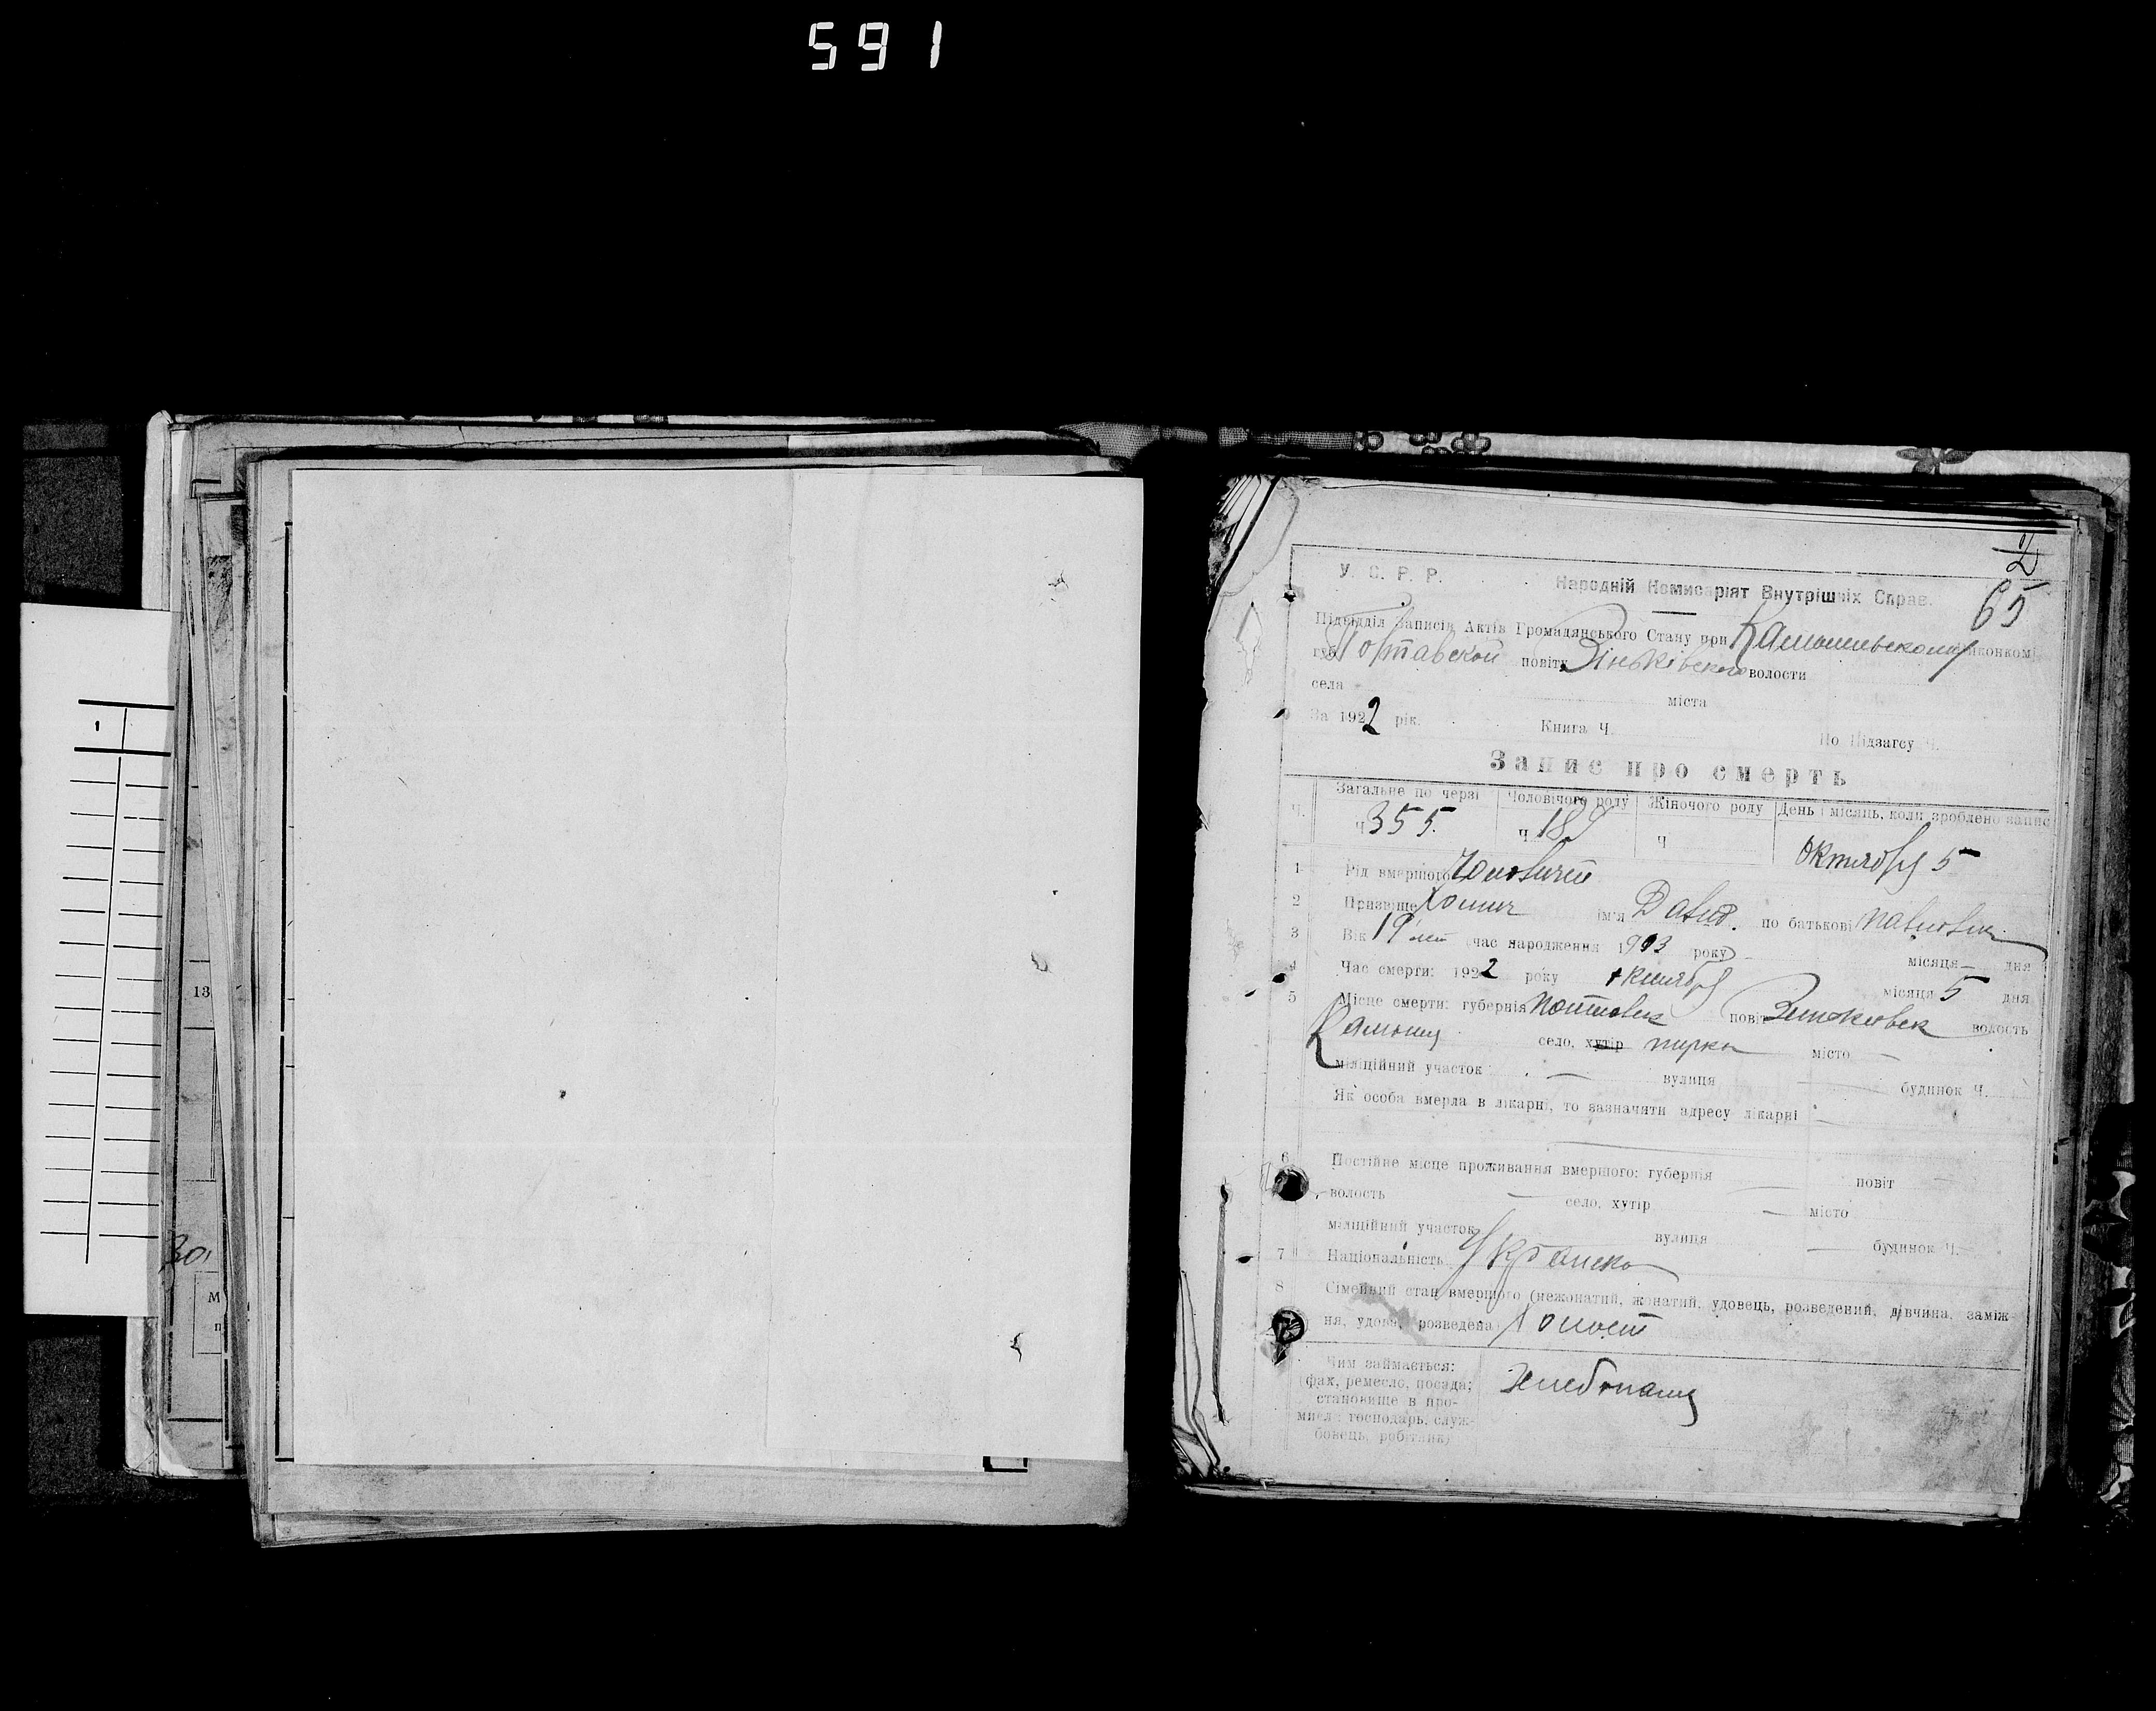 591
2
65
У. С. Р. Р.
Народній Комисаріят Внутрішніх Справ.
Підвідділ Записів Актів Громадянського Стану при виконкомі
губ. Полтавской повіту Зіньківского волости
села міста
За 1922 рік. Книга Ч. По Підзагсу Ч.
Запис про смерть
Ч. Загальне по черзі Чоловічого роду Жіночого роду День і місяць, коли зроблено запис
Ч 355. Ч Ч Октября 5
1 Рід вмершого
2 Призвіще ім'я Давид. по батькові Павлович
3 Вік 19 лет (час народження 1903 року) місяця — дня
4 Час смерти: 1922 року октября місяця 5 дня
5 Місце смерти: губернія повіт волость
село, хутір місто —
міліційний участок — вулиця — будинок Ч.
Як особа вмерла в лікарні, то зазначити адресу лікарні —
6 Постійне місце проживання вмершого: губернія — повіт —
волость — село, хутір — місто
міліційний участок вулиця — будинок Ч.
7 Національність
8 Сімейний стан вмершого (нежонатий, жонатий, удовець, розведений, дівчина, заміж
ня, удова, розведена) холост
Чим займається:
(фах, ремесло, посада;
становище в про-
мислі: господарь, служ-
бовець, робітник)
13
М
п
1